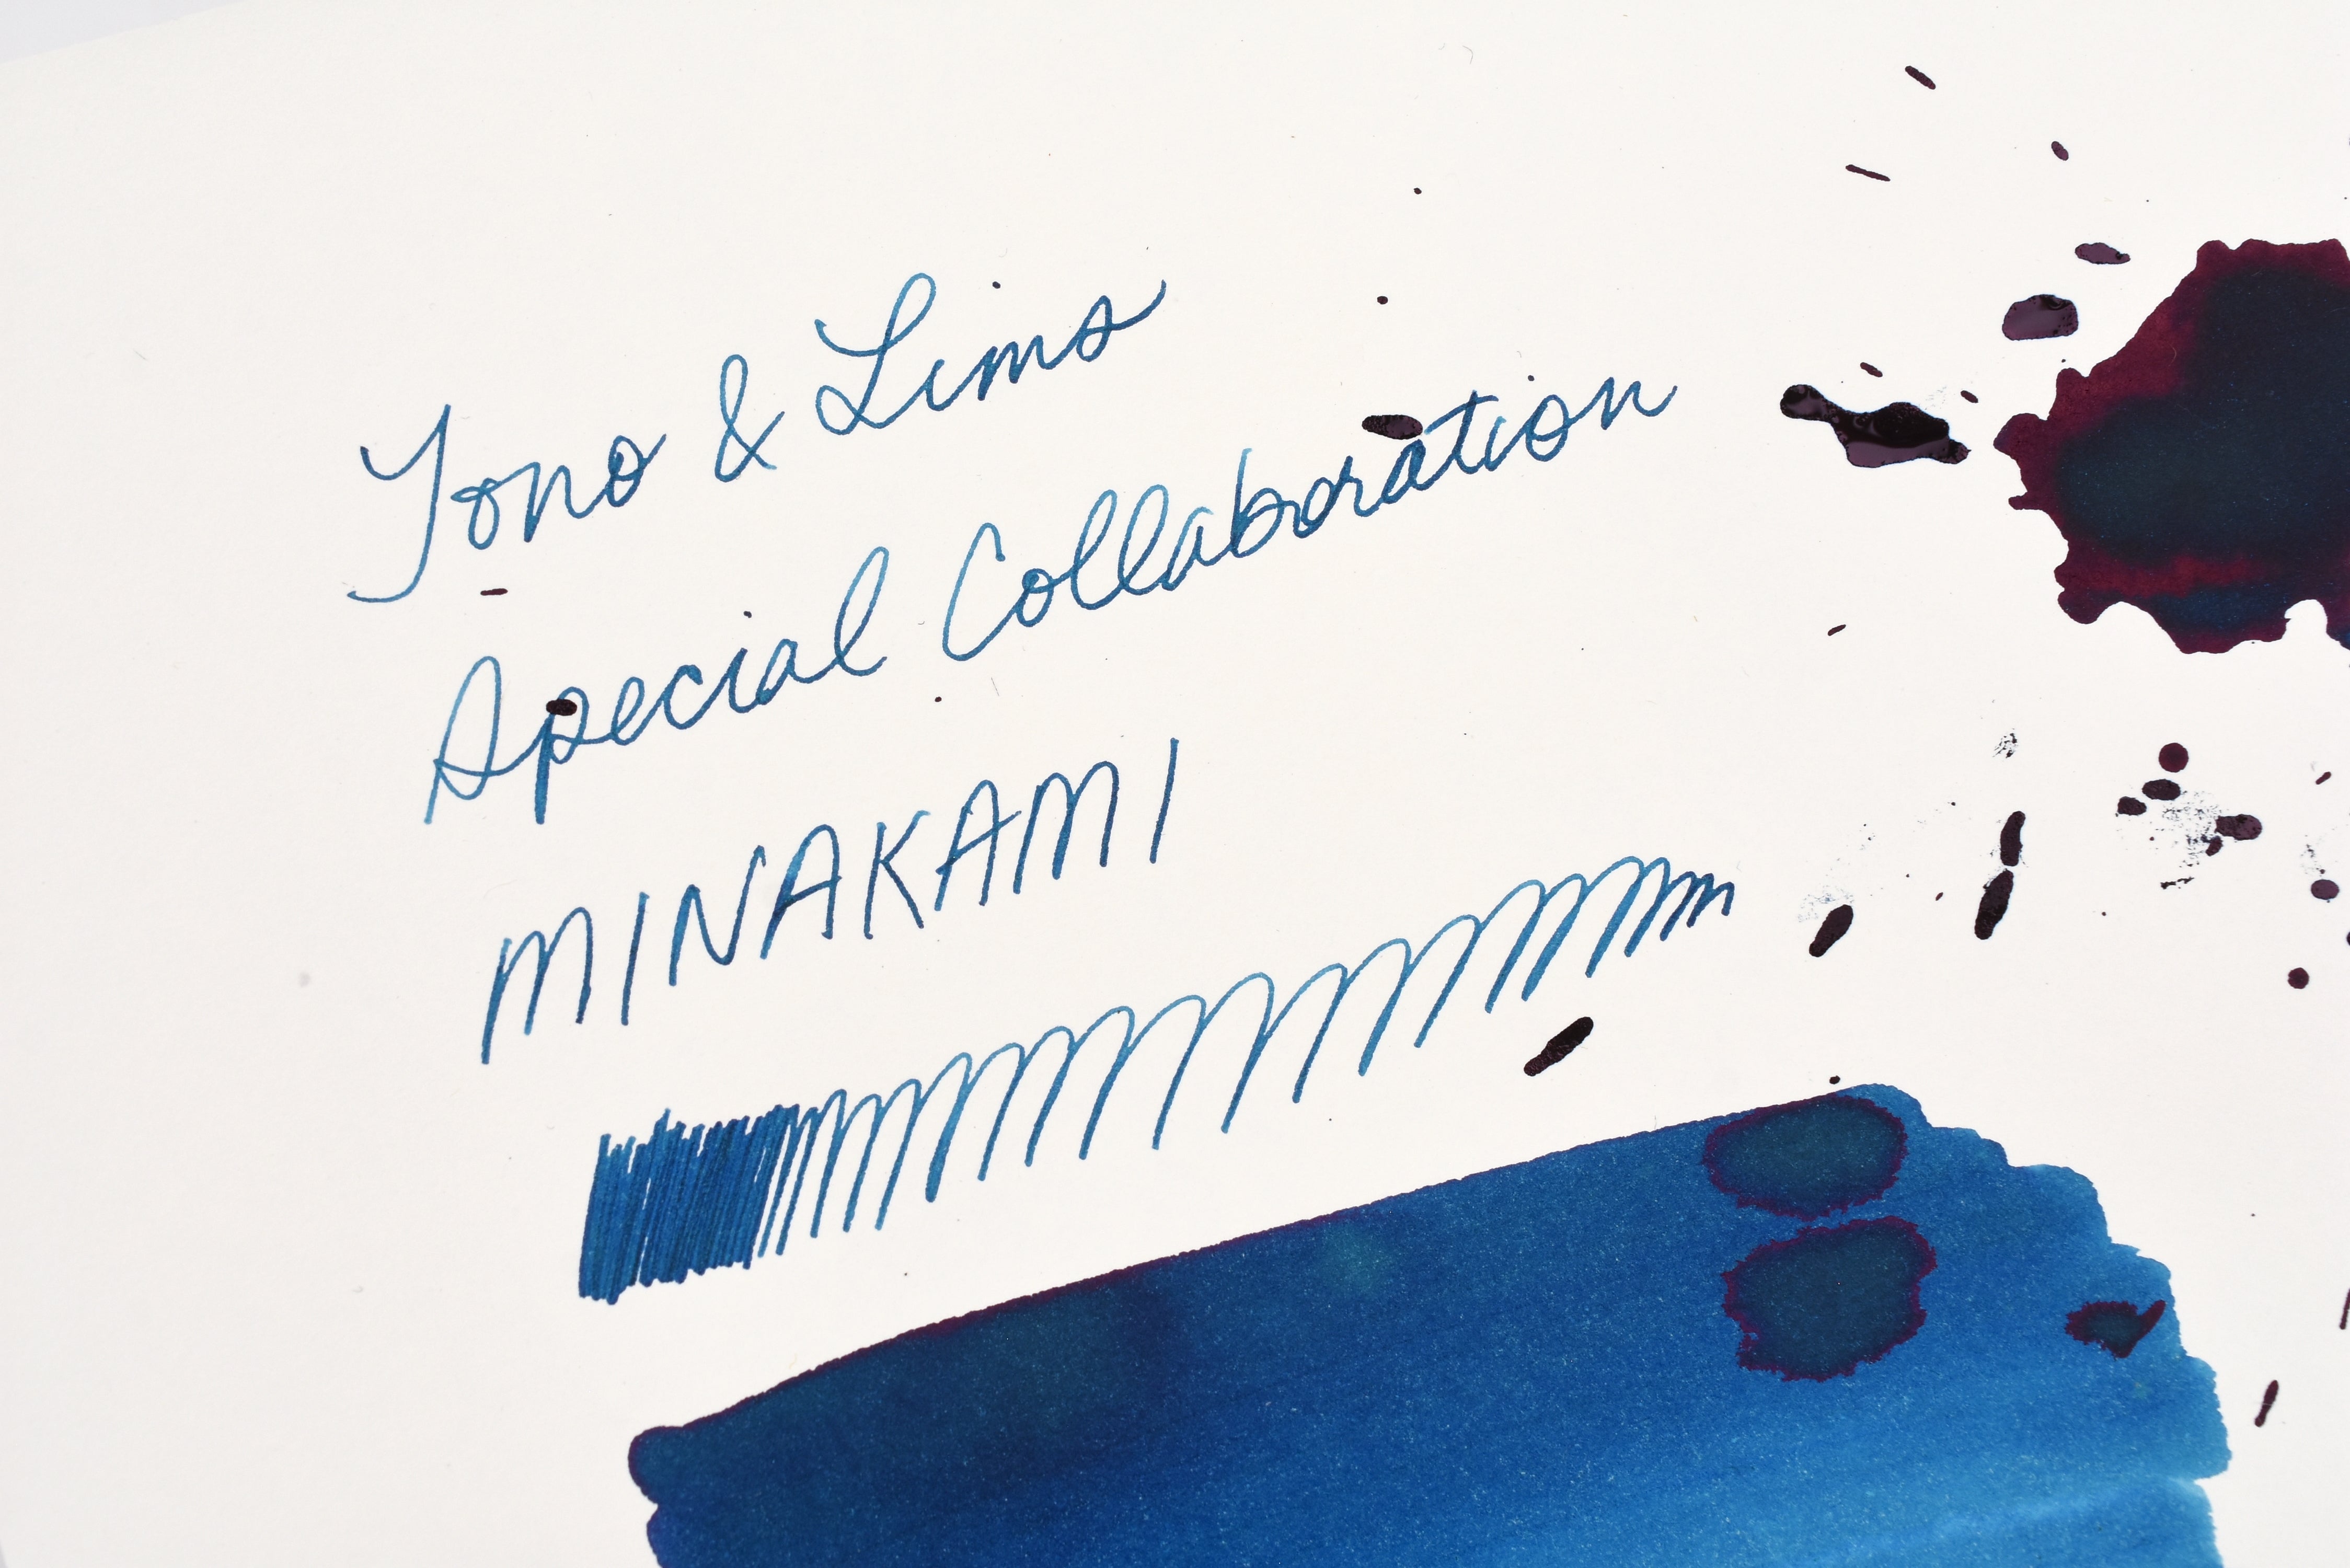 Tono & Lims
Special Collaboration
MINAKAMI